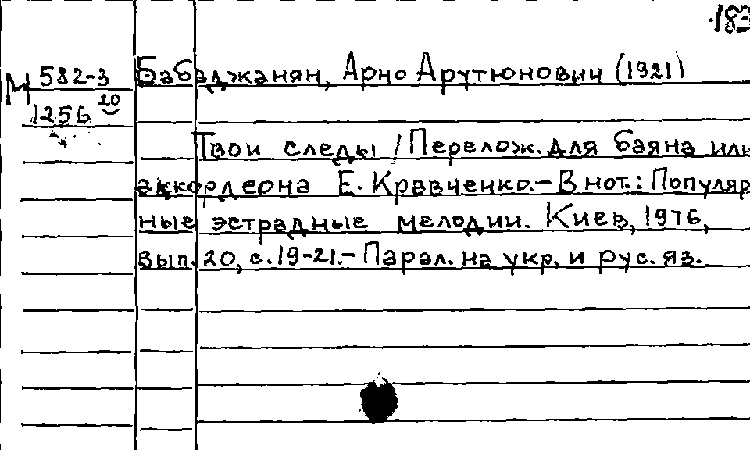 183
М 582-3 Бабаджанян, Арно Арутюнович (1921)
1256 20
Твои следы / Перелож. для баяна или
аккордеона Е. Кравченко.- В нот.: Популяр
ные эстрадные мелодии. Киев, 1976,
вып. 20, с. 19-21.- Парал. на укр. и рус. яз.